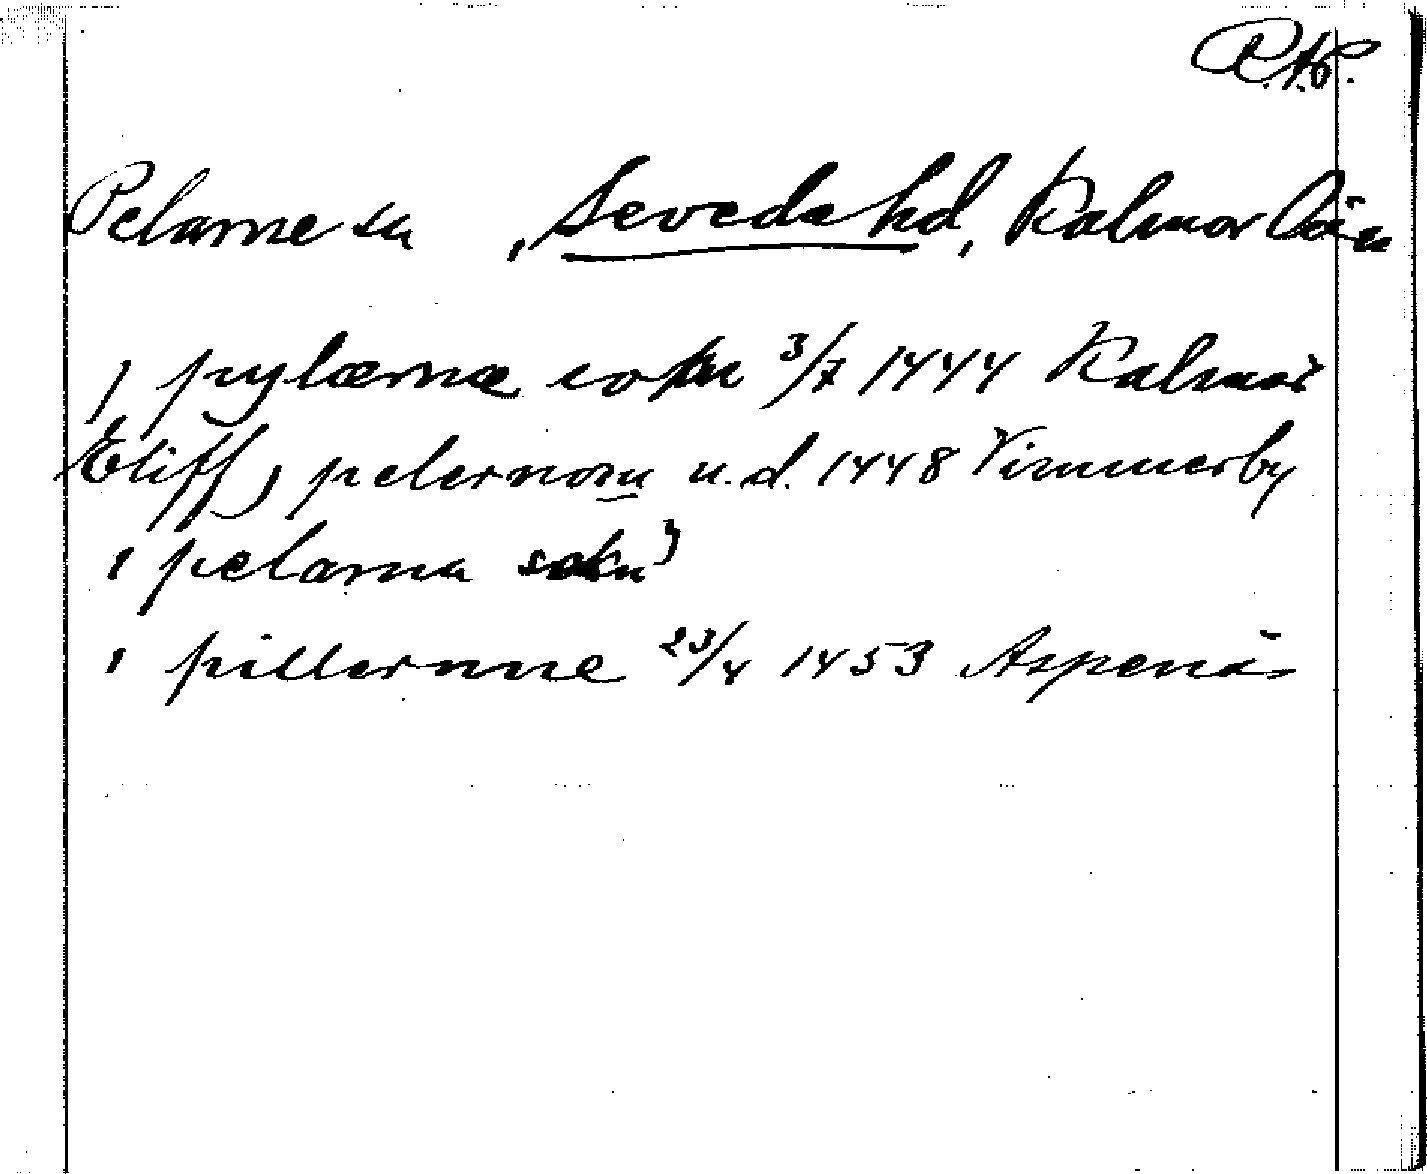 R.Ap.
Pelarne sn , Sevede hd, Kalmar län
j pylærnæ sokn 3/7 1444 Kalmar
Eliff j pelernom u.d. 1448 Vimmerby
i pelarna sokn
i pillernne 23/4 1453 Aspenäs